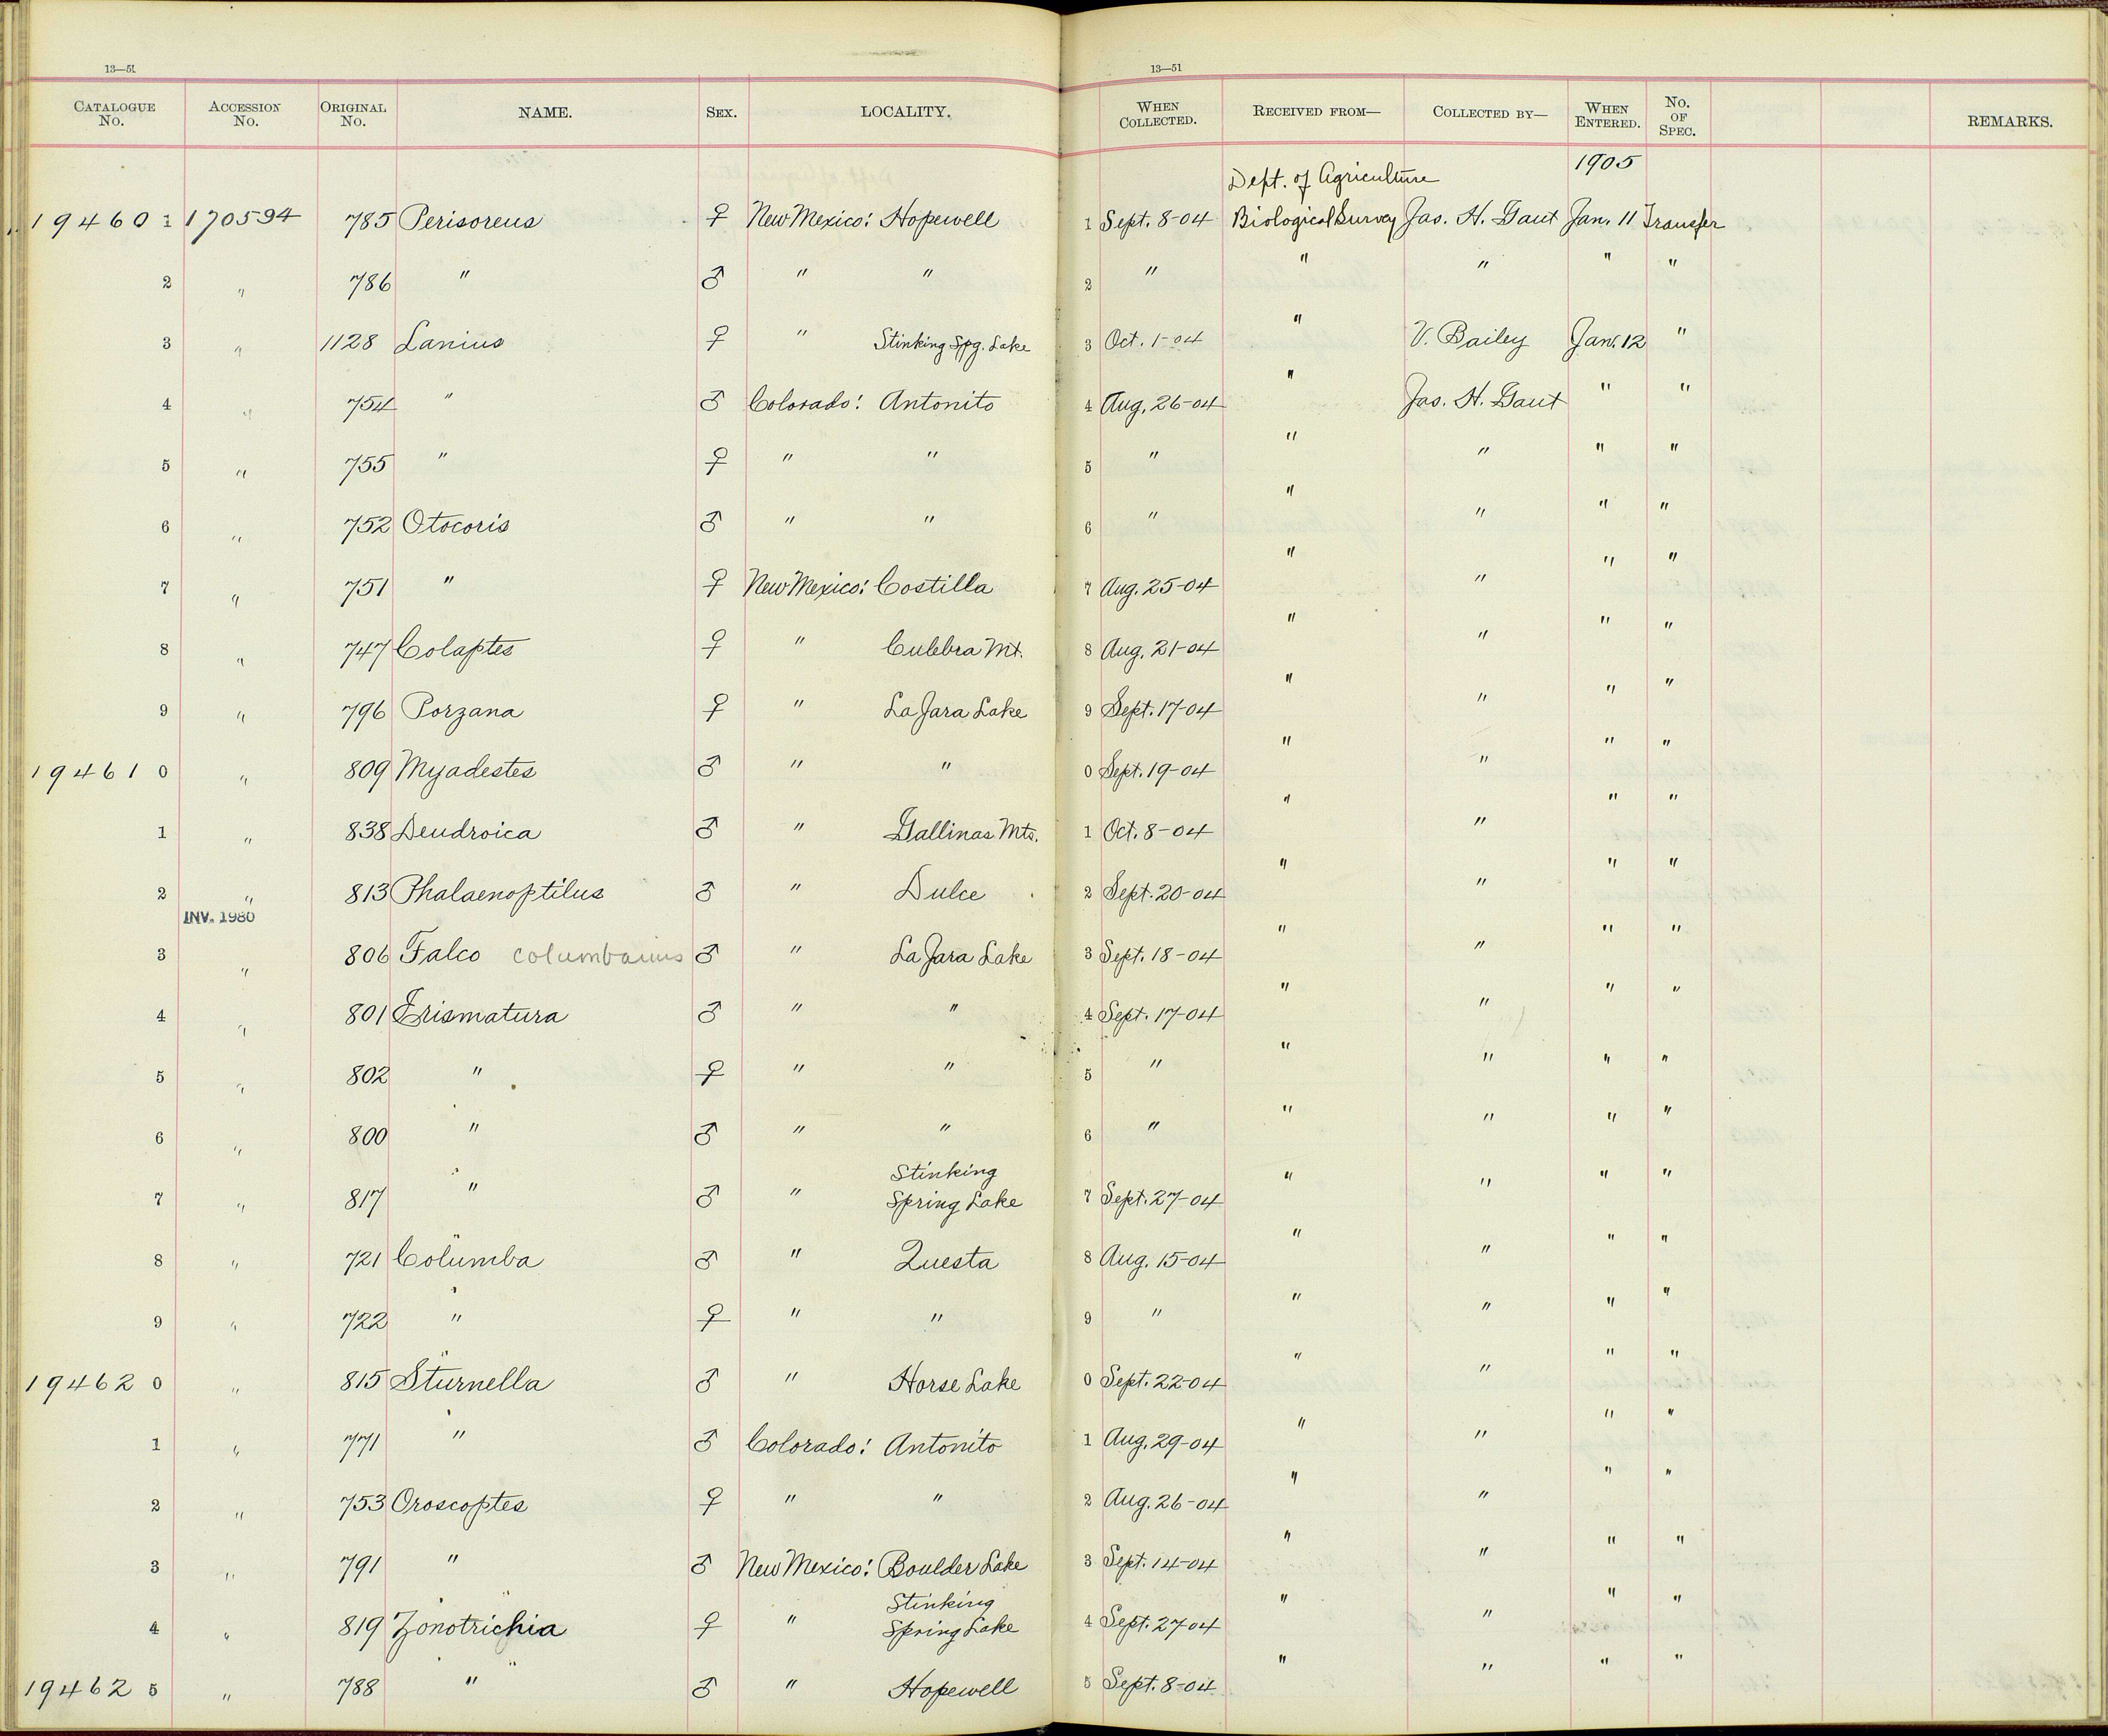 13—51 13—51
CATALOGUE No. ACCESSION No. ORIGINAL No. NAME. SEX. LOCALITY. WHEN COLLECTED. RECEIVED FROM— COLLECTED BY— WHEN ENTERED. No. OF SPEC. REMARKS.
Dept. of Agriculture 1905
19460 1 170594 785 Perisoreus ♀ New Mexico: Hopewell 1 Sept. 8-04 Biological Survey Jas. H. Gaut Jan. 11 Transfer
2 " 786 " ♂ " " 2 " " " " "
3 " 1128 Lanius ♀ " Stinking Spg. Lake 3 Oct. 1-04 " V. Bailey Jan. 12 "
4 " 754 " ♂ Colorado: Antonito 4 Aug. 26-04 " Jas. H. Gaut " "
5 " 755 " ♀ " " 5 " " " " "
6 " 752 Otocoris ♂ " " 6 " " " " "
7 " 751 " ♀ New Mexico: Costilla 7 Aug. 25-04 " " " "
8 " 747 Colaptes ♀ " Culebra Mt. 8 Aug. 21-04 " " " "
9 " 796 Porzana ♀ " La Jara Lake 9 Sept. 17-04 " " " "
19461 0 " 809 Myadestes ♂ " " 0 Sept. 19-04 " " " "
1 " 838 Dendroica ♂ " Gallinas Mts. 1 Oct. 8-04 " " " "
2 " 813 Phalaenoptilus ♂ " Dulce 2 Sept. 20-04 " " " "
INV. 1980
3 " 806 Falco columbarius ♂ " La Jara Lake 3 Sept. 18-04 " " " "
4 " 801 Erismatura ♂ " " 4 Sept. 17-04 " " " "
5 " 802 " ♀ " " 5 " " " " "
6 " 800 " ♂ " " 6 " " " " "
7 " 817 " ♂ " Stinking Spring Lake 7 Sept. 27-04 " " " "
8 " 721 Columba ♂ " Questa 8 Aug. 15-04 " " " "
9 " 722 " ♀ " " 9 " " " " "
19462 0 " 815 Sturnella ♂ " Horse Lake 0 Sept. 22-04 " " " "
1 " 771 " ♂ Colorado: Antonito 1 Aug. 29-04 " " " "
2 " 753 Oroscoptes ♀ " " 2 Aug. 26-04 " " " "
3 " 791 " ♂ New Mexico: Boulder Lake 3 Sept. 14-04 " " " "
4 " 819 Zonotrichia ♀ " Stinking Spring Lake 4 Sept. 27-04 " " " "
19462 5 " 788 " ♂ " Hopewell 5 Sept. 8-04 " " " "